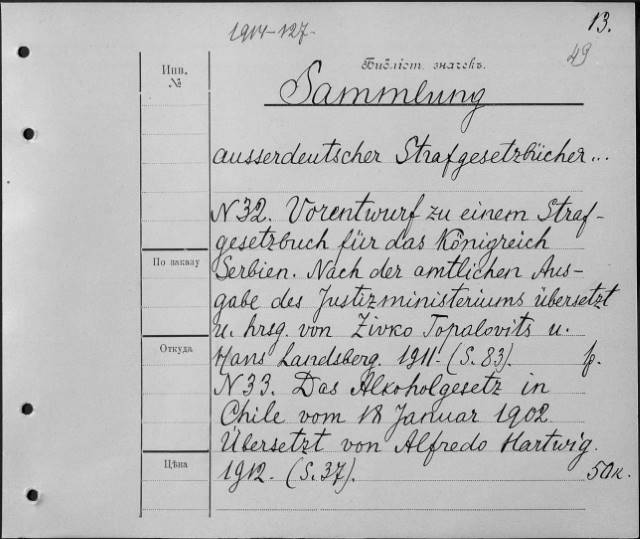 1914-127-
13.
49
Инв.
№
Библіот. значекъ.
Sammlung
ausserdeutscher Strafgesetzbücher...
N 32. Vorentwurf zu einem Straf-
gesetzbuch für das Königreich
По заказу
Serbien. Nach der amtlichen Aus-
gabe des Justizministeriums übersetzt
u. hrsg. von Zivko Topalovits u.
Откуда
Hans Landsberg. 1911. (S. 83).
N 33. Das Alkoholgesetz in
Chile vom 18 Januar 1902.
Übersetzt von Alfredo Hartwig.
Цѣна
1912. (S. 37).
50к.